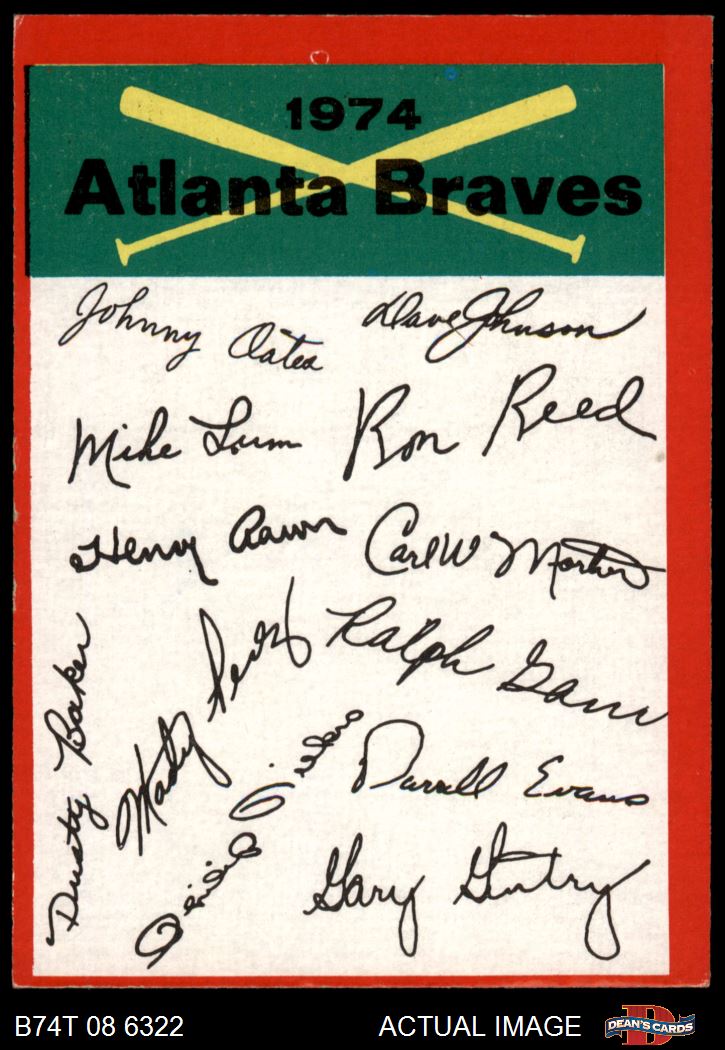 1974
Atlanta Braves
Johnny Oates
Dave Johnson
Mike Lum
Ron Reed
Henry Aaron
Carl W Morton
Marty Perez
Ralph Garr
Dusty Baker
Darrell Evans
Gary Gentry
B74T 08 6322
ACTUAL IMAGE
DEAN'S CARDS